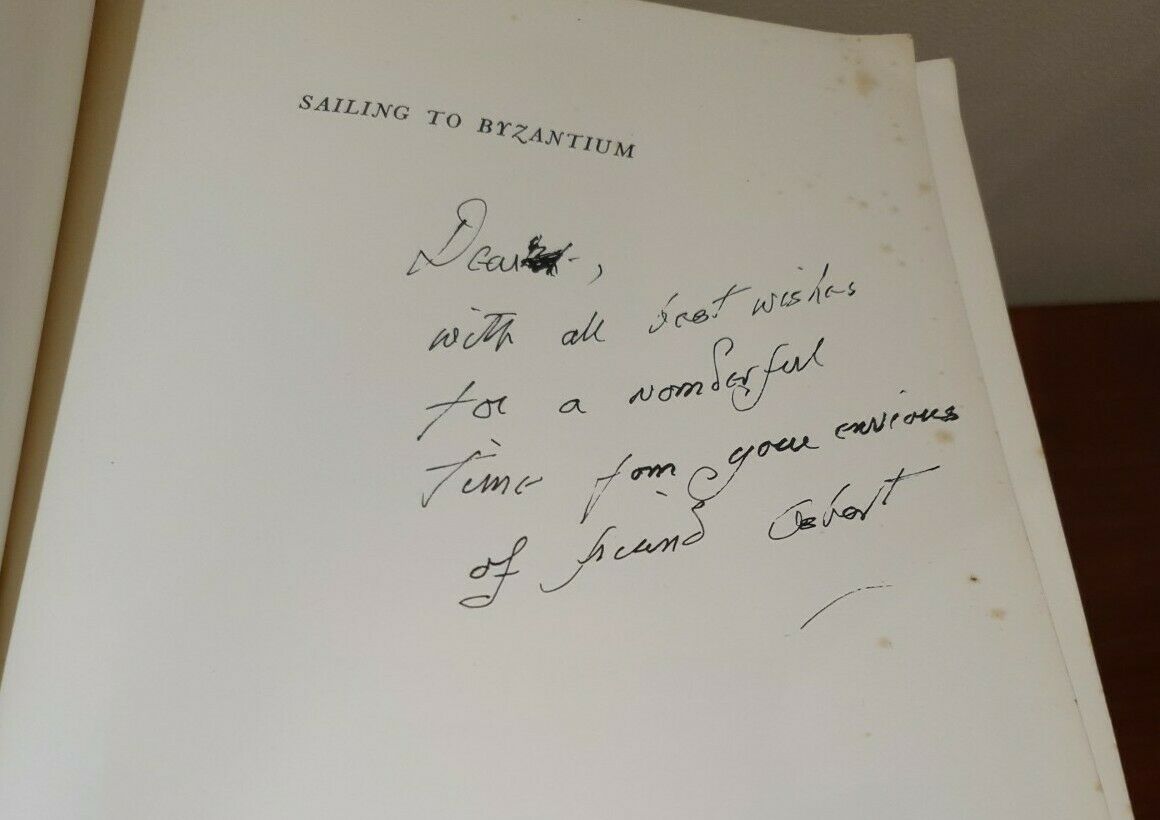 SAILING TO BYZANTIUM
Dear,
with all best wishes
for a wonderful
time from your envious
of friend